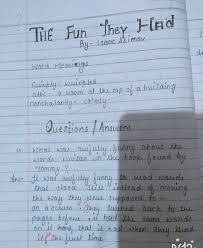 THE FUN THEY HAD
By- Isaac Asimov
Word Meanings
Crinkly - wrinkled
attic - a room at the top of a building
nonchalantly - calmly
Questions / Answers
1- What was awfully funny about the
words written in the book found by
"Tommy"?
Ans- It was awfully funny to read words
that stood still instead of moving
the way they were supposed to -
on a screen. They turned back to the
pages before it had the same words
on it had that it had when they
it the first time